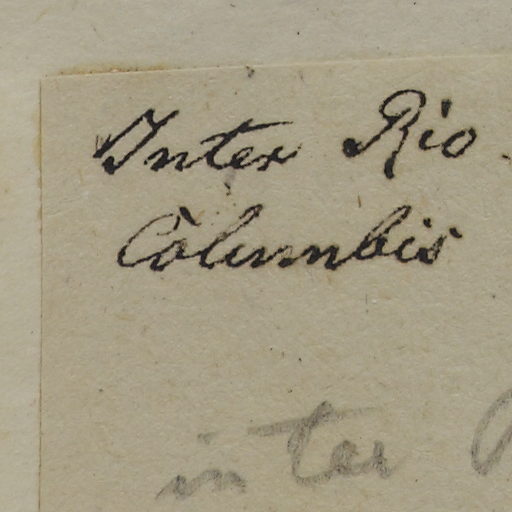 Inter Rio
Columbis
inter